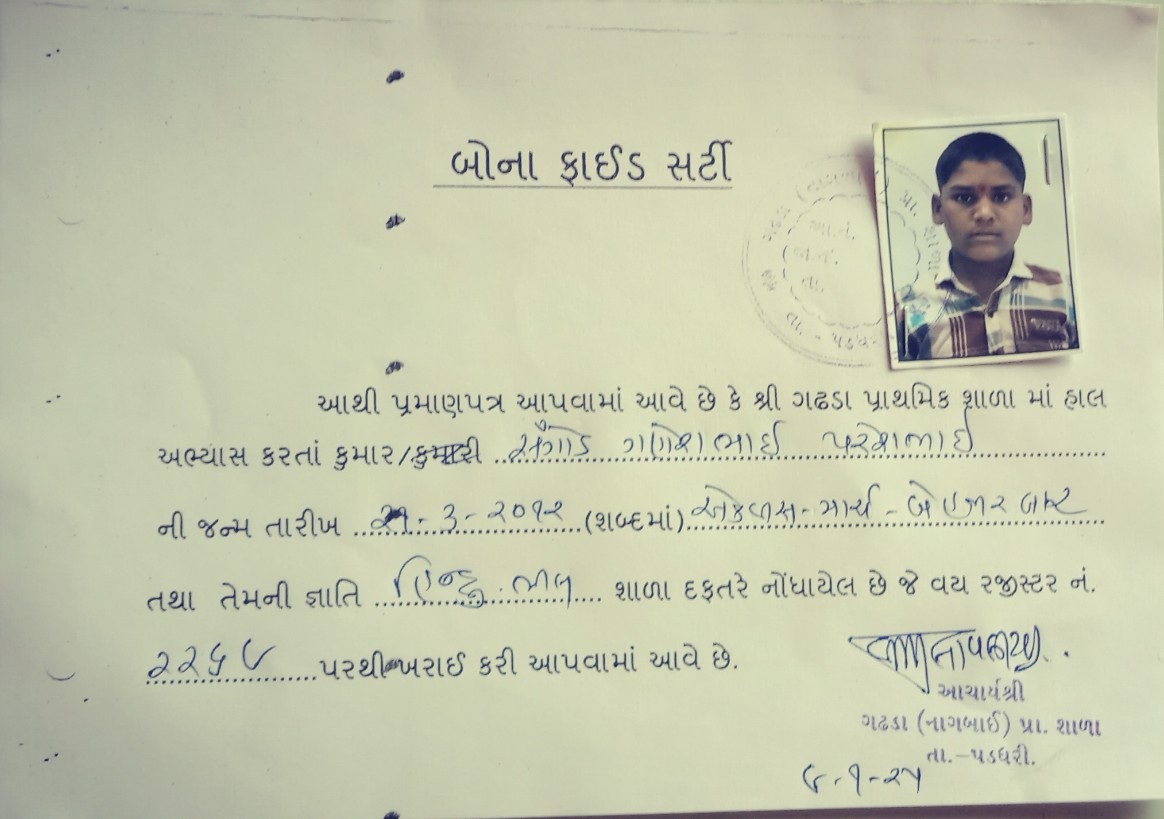 બોના ફાઈડ સર્ટી
ગઢડા (નાગબાઈ) પ્રા. શાળા
તા. - પડધરી
આથી પ્રમાણપત્ર આપવામાં આવે છે કે શ્રી ગઢડા પ્રાથમિક શાળા માં હાલ
અભ્યાસ કરતાં કુમાર/કુમારી ગણેશભાઈ પરેશભાઈ
ની જન્મ તારીખ ૨૧-૩-૨૦૧૨ (શબ્દમાં) એકવીસ-માર્ચ-બે હજાર બાર
તથા તેમની જ્ઞાતિ હિન્દુ ભીલ શાળા દફતરે નોંધાયેલ છે જે વય રજીસ્ટર નં.
પરથી ખરાઈ કરી આપવામાં આવે છે.
આચાર્યશ્રી
ગઢડા (નાગબાઈ) પ્રા. શાળા
તા.-પડધરી.
૯-૧-૨૫